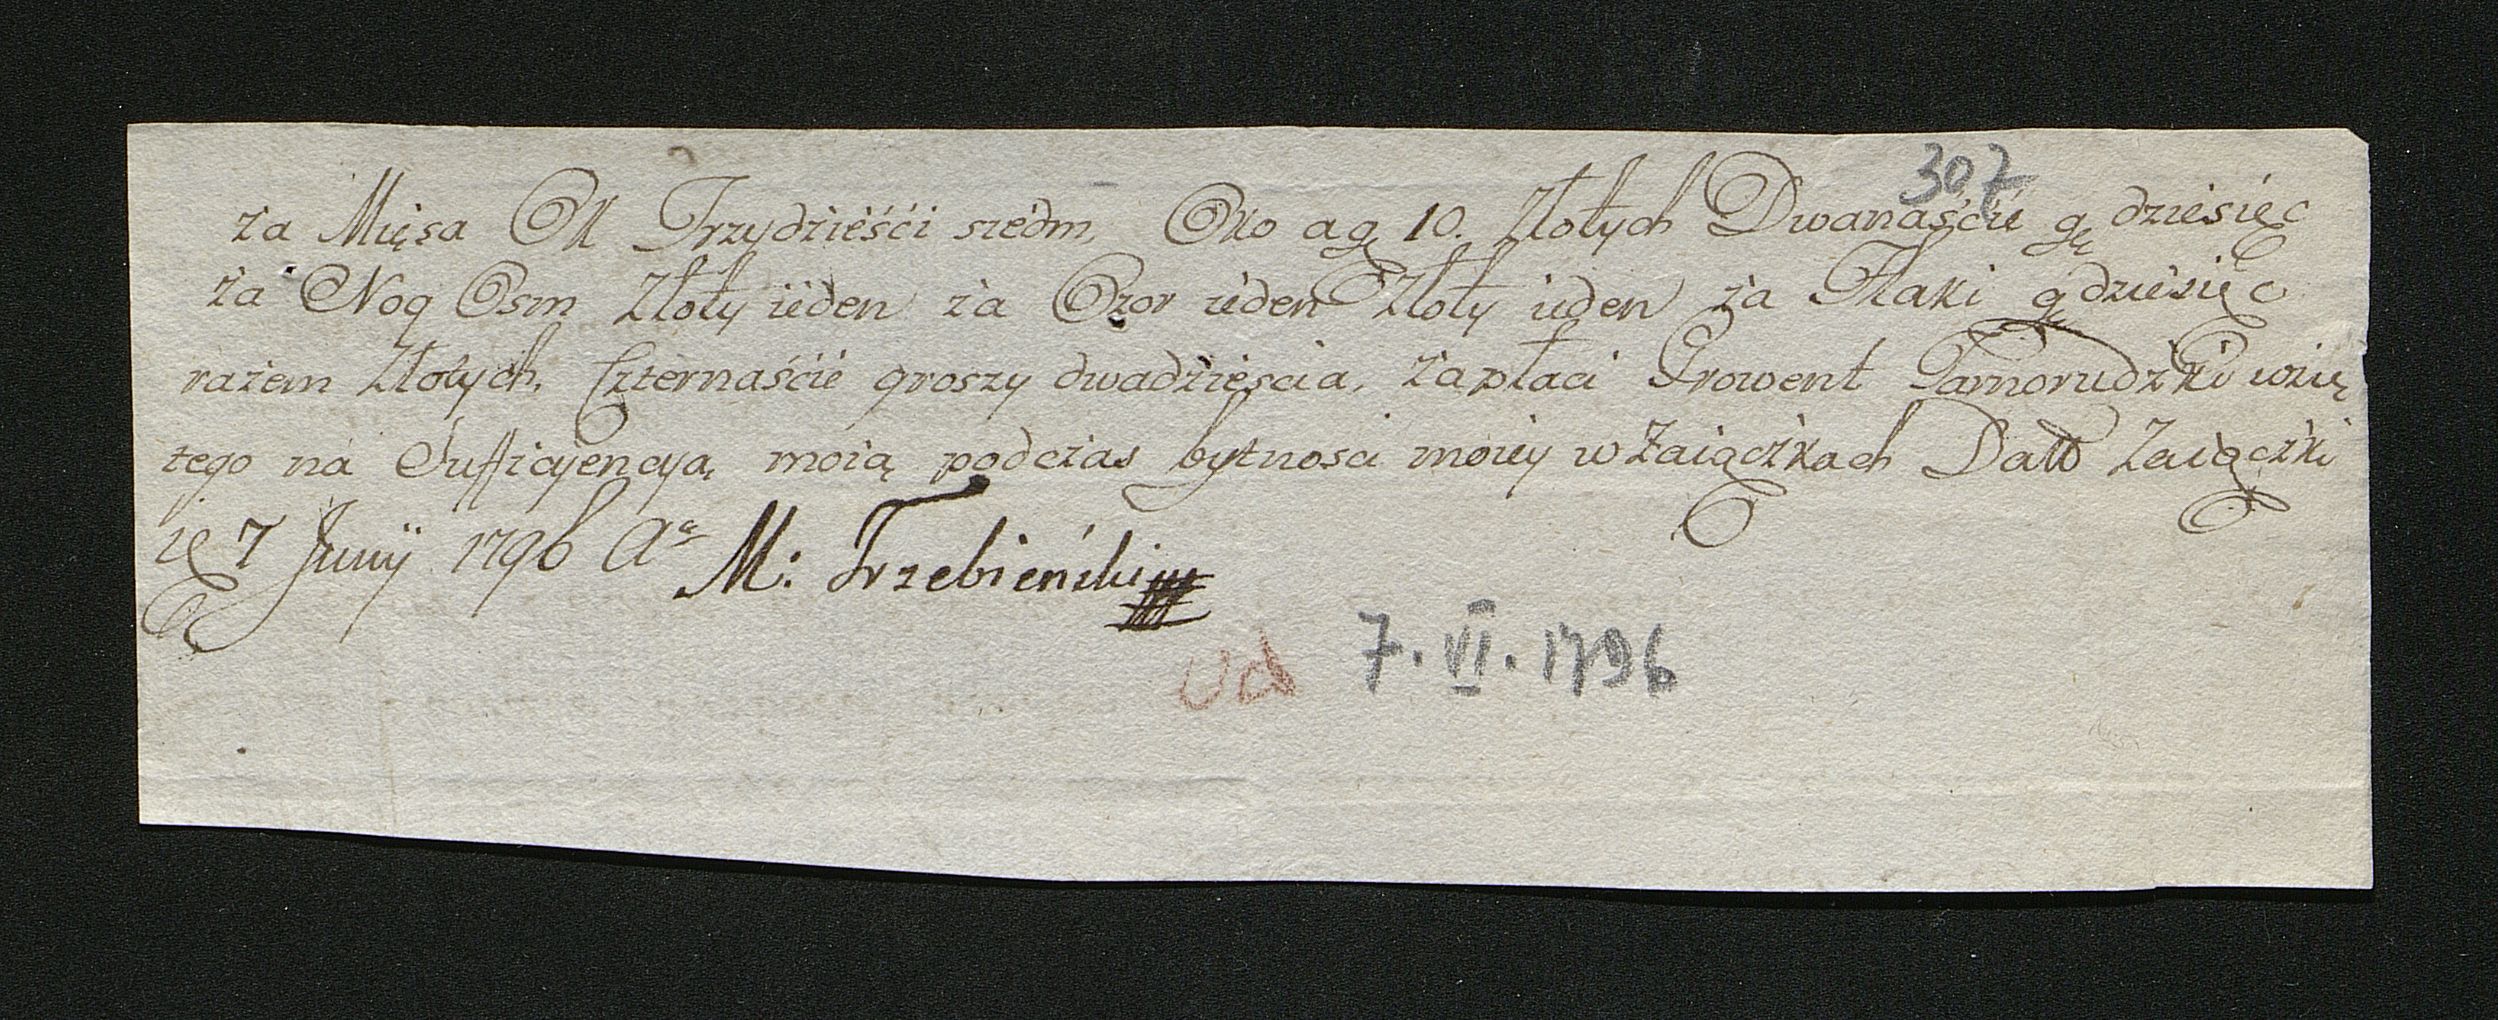 307
za Mięsa Ok Trzydzieści siedm, Oko a gę 10. Złotych Dwanaście gę dziesięc
za Nog Osm Złoty ieden za Ozor ieden Złoty ieden za Flaki gę dziesięc
razem Złotych, Czternaście groszy dwadzieścia, zapłaci Prowent Tarnorudzki wzię
tego na Sufficyencyą, moią podczas bytnosci moiey w Zaiączkach Datt Zaiączki
7 Junij 1796 M: Trzebieński
Ud 7. VI. 1796